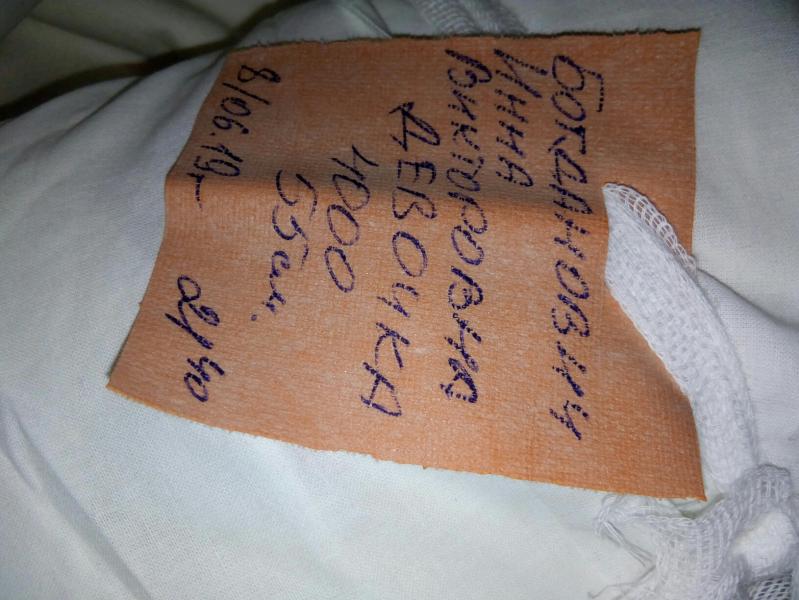 БОГДАНОВИЧ
ИННА
ВИКТОРОВНА
ДЕВОЧКА
4000
55 см.
8/06.19г. 2/40